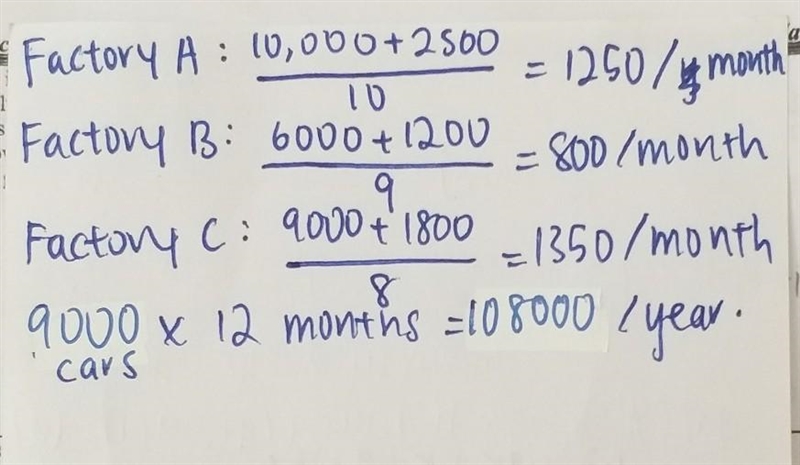 Factory A: 10,000+2500 / 10 = 1250/month
Factory B: 6000+1200 / 9 = 800/month
Factory C: 9000+1800 / 8 = 1350/month
9000 x 12 months = 108000 /year.
cars